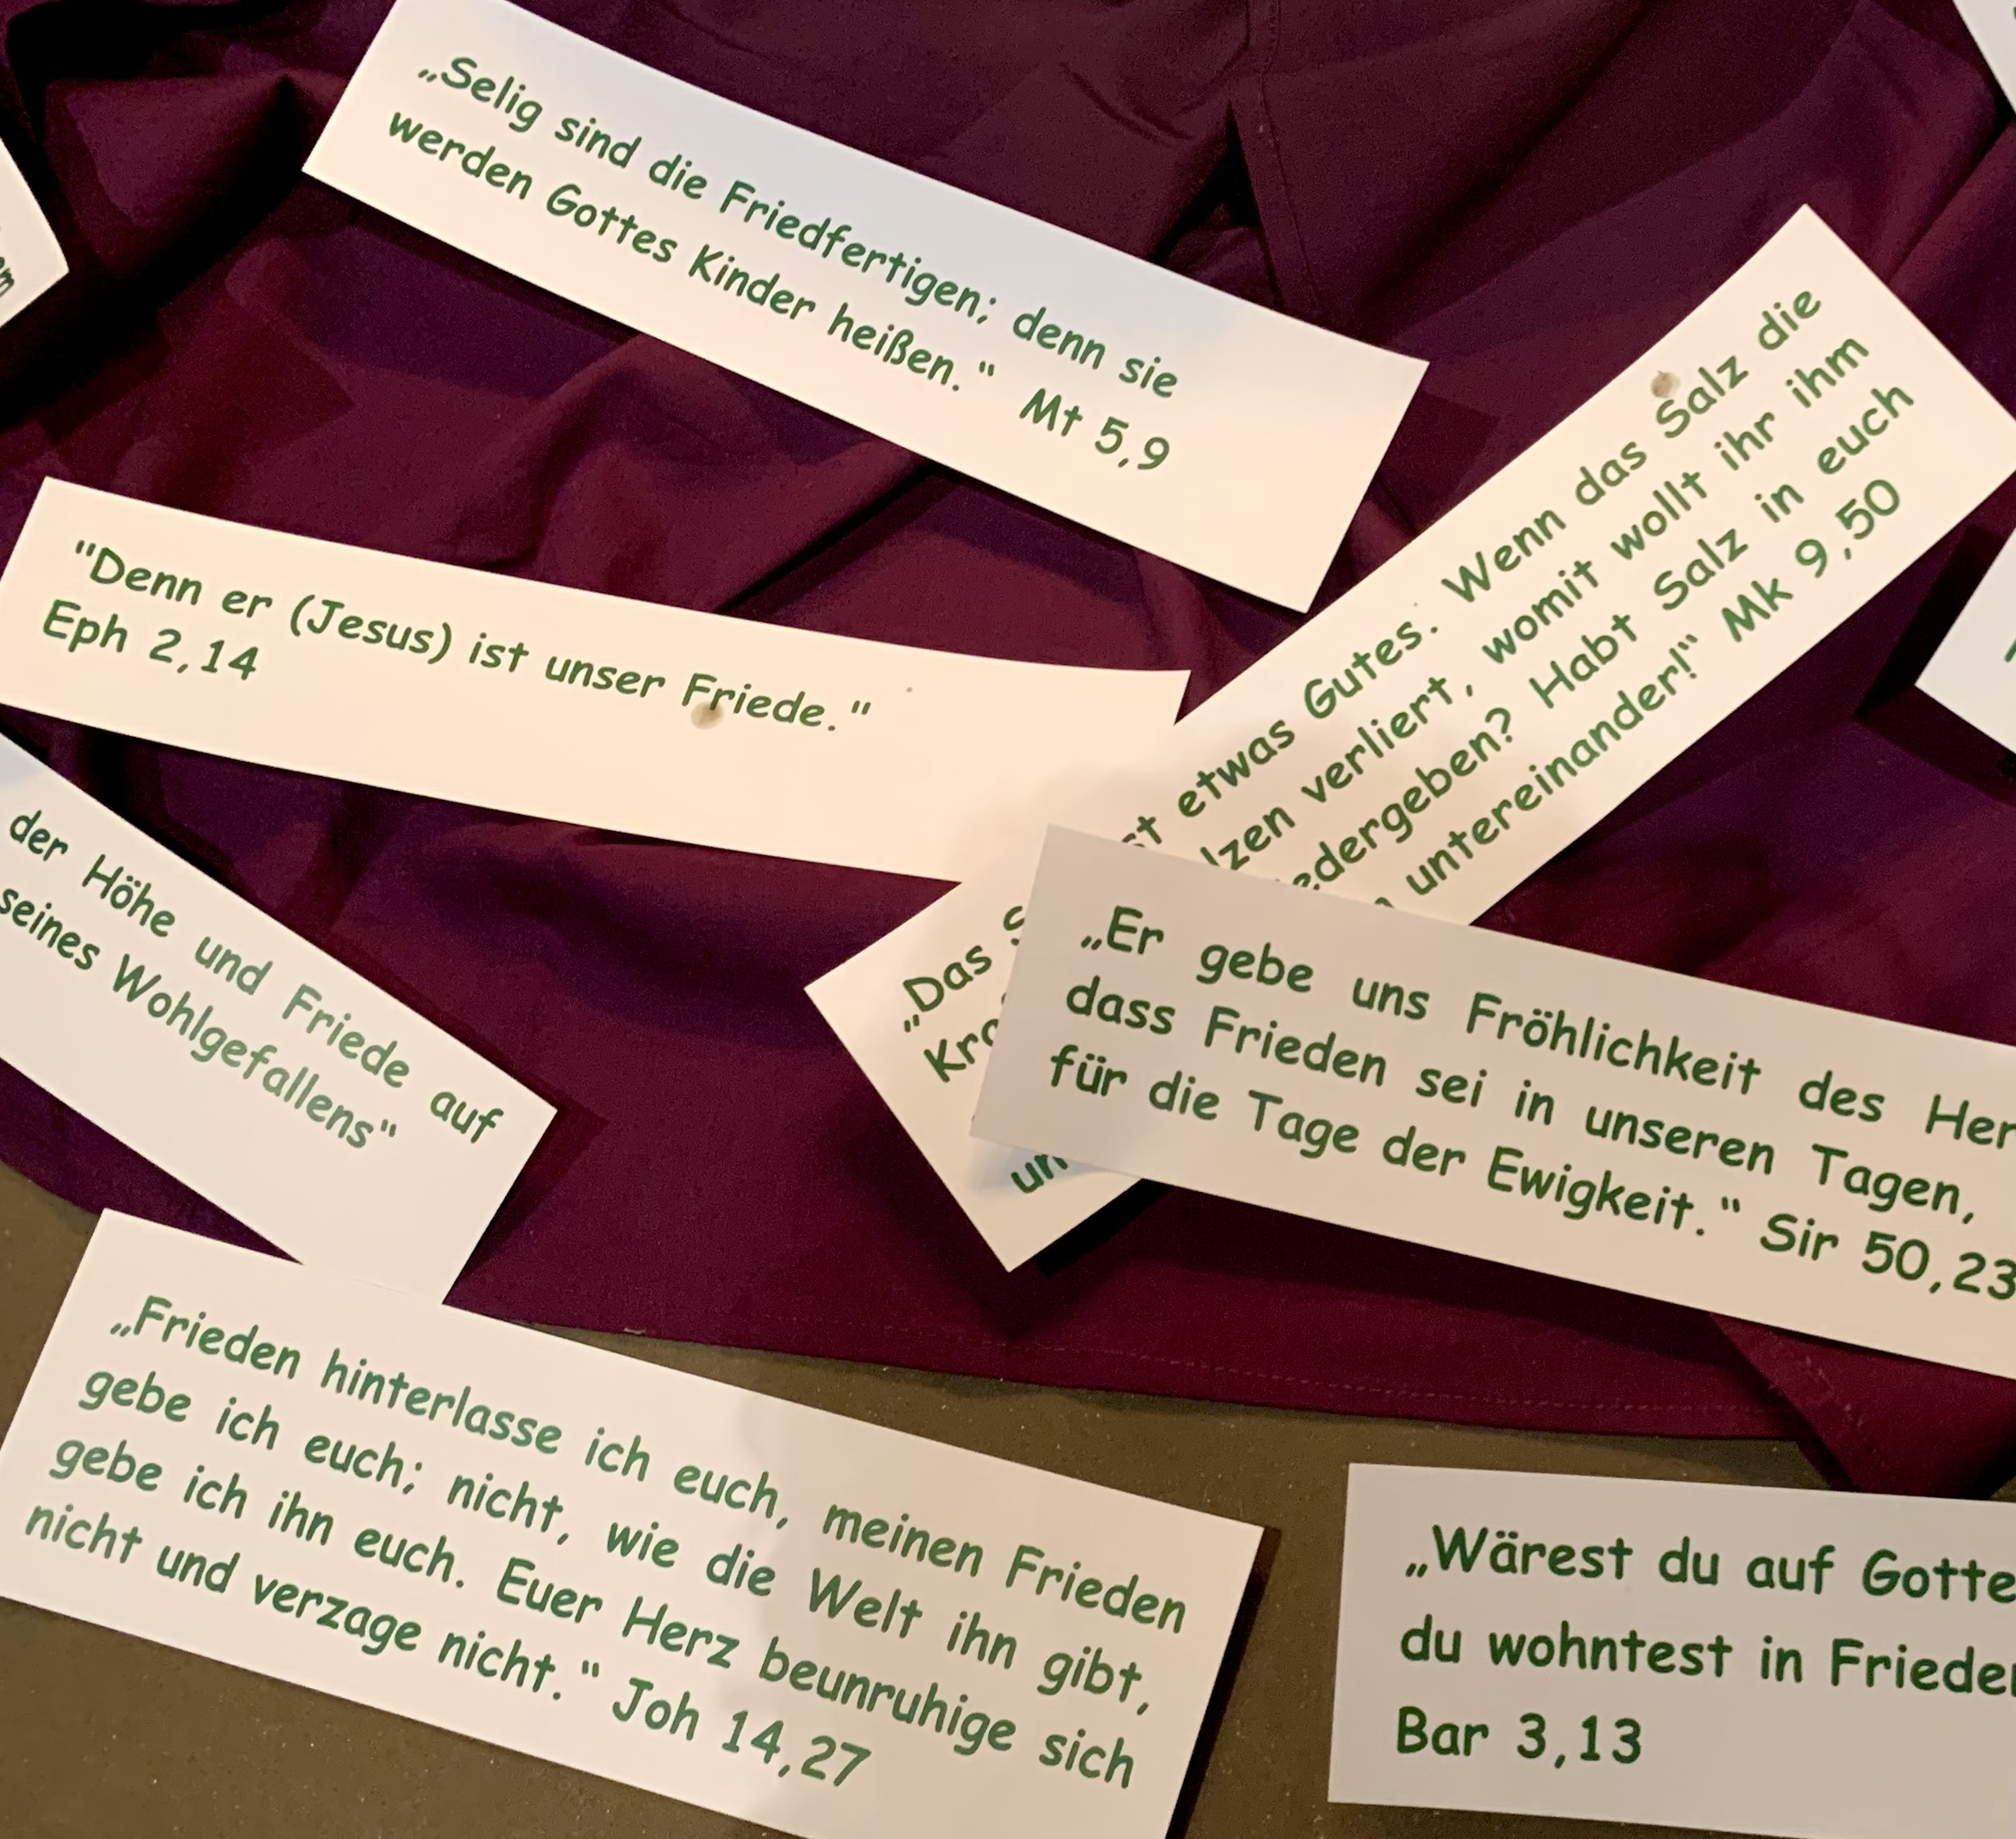 „Selig sind die Friedfertigen; denn sie
werden Gottes Kinder heißen." Mt 5,9
"Denn er (Jesus) ist unser Friede."
Eph 2,14
„Das etwas Gutes. Wenn das Salz die
verliert, womit wollt ihr ihm
Habt Salz in euch
untereinander!“ Mk 9,50
„Er gebe uns Fröhlichkeit des
dass Frieden sei in unseren Tagen,
für die Tage der Ewigkeit.“ Sir 50,23
der Höhe und Friede auf
seines Wohlgefallens“
„Frieden hinterlasse ich euch, meinen Frieden
gebe ich euch; nicht, wie die Welt ihn gibt,
gebe ich ihn euch. Euer Herz beunruhige sich
nicht und verzage nicht." Joh 14,27
„Wärest du auf
du wohntest in
Bar 3,13